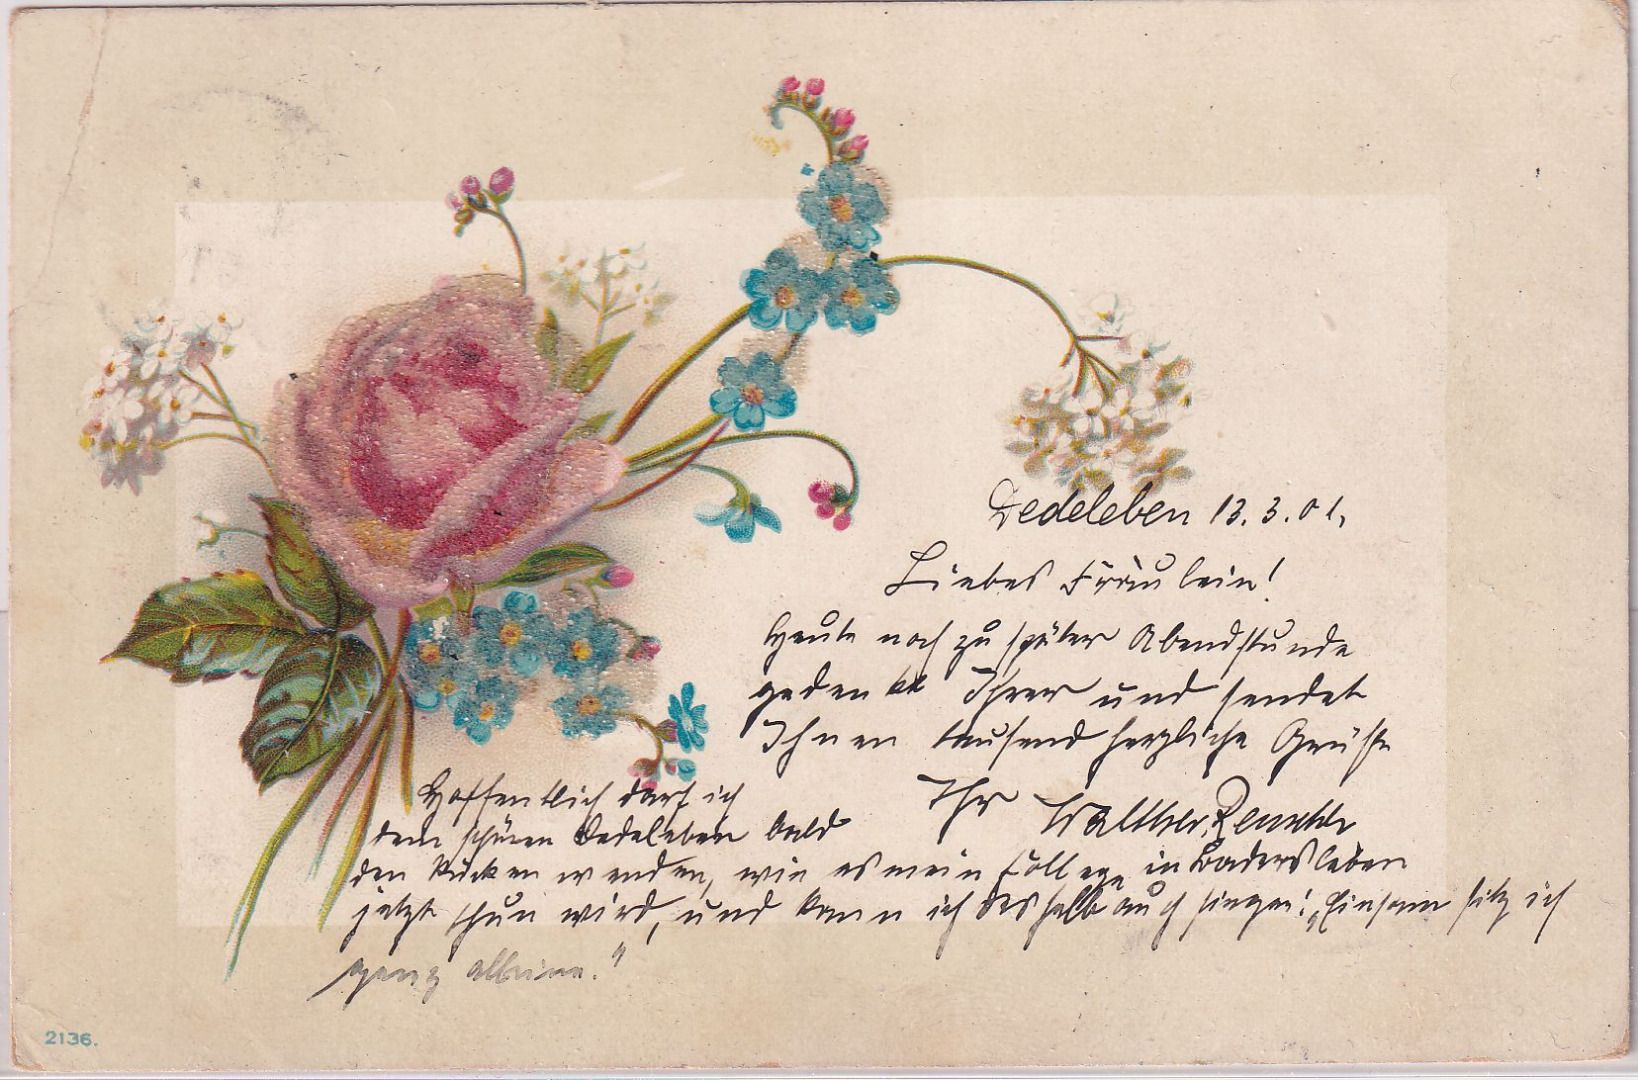 Dedeleben 13.3.01.
Liebes Fräulein!
Heute noch zu später Abendstunde
gedenkt Ihrer und sendet
Ihnen tausend herzliche Grüße
Ihr Walther
Hoffentlich darf ich
dem schönen Dedeleben bald
den Rücken wenden, wie es mein College in Badersleben
jetzt thun wird, und kann ich deshalb auch singen: „Einsam sitz ich
ganz alleine."
2136.